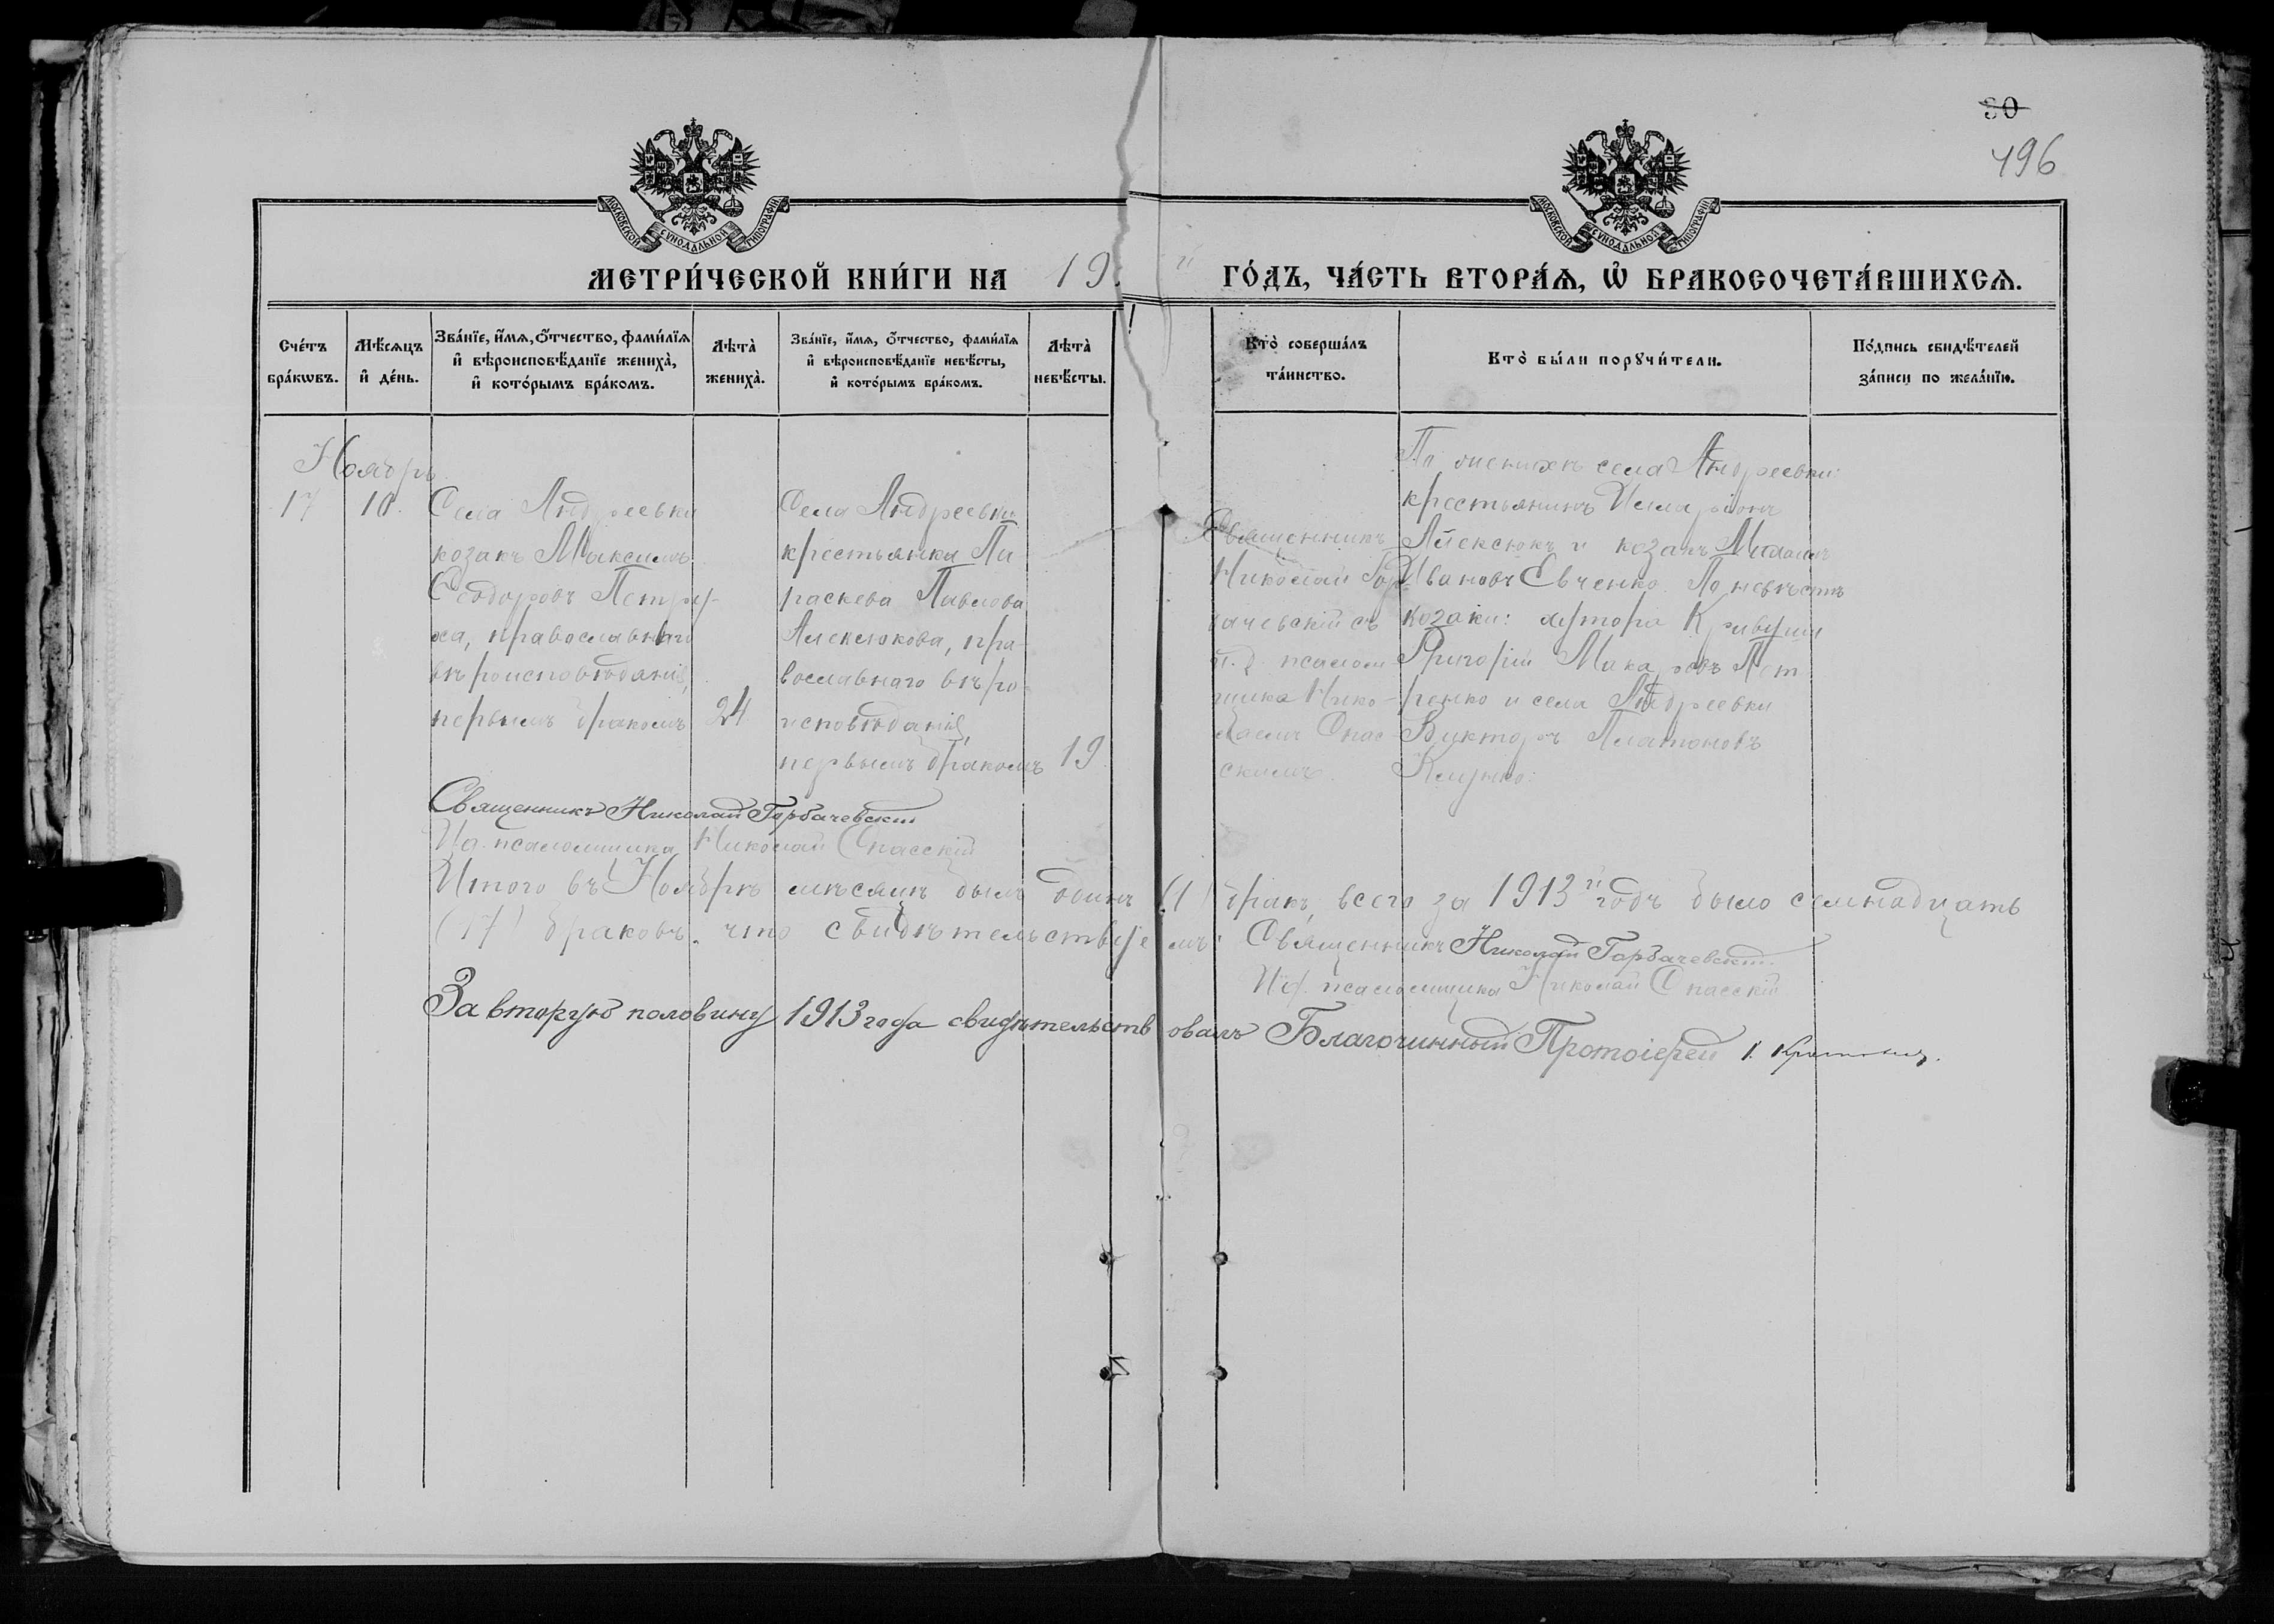 30
496
МОСКОВСКОЙ СѴНОДАЛЬНОЙ ТИПОГРАФІИ
МОСКОВСКОЙ СѴНОДАЛЬНОЙ ТИПОГРАФІИ
МЕТРИ́ЧЕСКОЙ КНИ́ГИ НА 19 й ГО́ДЪ, ЧА́СТЬ ВТОРА́Ѧ, Ѡ҆ БРАКОСОЧЕТА́ВШИХСѦ.
Сче́тъ
бра́кѡвъ.
Мѣ́сѧцъ
и҆ де́нь.
Зва́нїе, и҆́мѧ, ѻ҆́тчество, фами́лїѧ
и҆ вѣроисповѣ́данїе жениха̀,
и҆ кото́рымъ бра́комъ.
Лѣта̀
жениха̀.
Зва́нїе, и҆́мѧ, ѻ҆́тчество, фами́лїѧ
и҆ вѣроисповѣ́данїе невѣ́сты,
и҆ кото́рымъ бра́комъ.
Лѣта̀
невѣ́сты.
Кто̀ соверша́лъ
та́инство.
Кто̀ бы́ли порꙋчи́тели.
По́дпись свидѣ́телей
за́писи по жела́нїю.
Ноябрь
17
10.
Села Андреевки
козакъ Максимъ
Ѳеодоровъ Петру-
ха, православнаго
вѣроисповѣданія,
первымъ бракомъ
24
Села Андреевки
крестьянка Па
раскева Павлова
Алексюкова, пра-
вославнаго вѣро-
исповѣданія,
первымъ бракомъ
19
Священникъ
Николай Гор-
бачевскій съ
и. д. псалом-
щика Нико-
лаемъ Спас-
скимъ.
По женихѣ села Андреевки:
крестьянинъ Иларіонъ
Алексюкъ и козакъ
Ивановъ Евченко. По невѣстѣ
козаки: хутора Кривуши
Григорій Макаровъ Пет
ренко и села Андреевки
Викторъ Платоновъ
Клунко.
Священникъ Николай Горбачевскій
Ид. псаломщика Николай Спасскій
Итого въ Ноябрѣ мѣсяцѣ былъ одинъ (1) бракъ, всего за 1913 й годъ было семнадцать
(17) браковъ, что свидѣтельствуемъ: Священникъ Николай Горбачевскій.
Ид. псаломщика Николай Спасскій
За вторую половину 1913 года свидѣтельствовалъ Благочинный Протоіерей І.